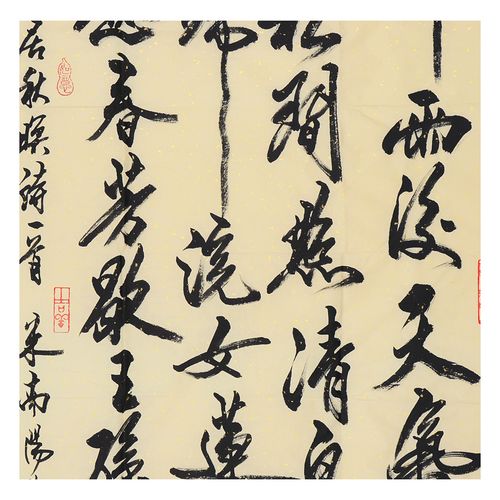 雨後天氣
松間照清
歸浣女蓮
春芳歇王孫
居秋暝詩一首 米南陽